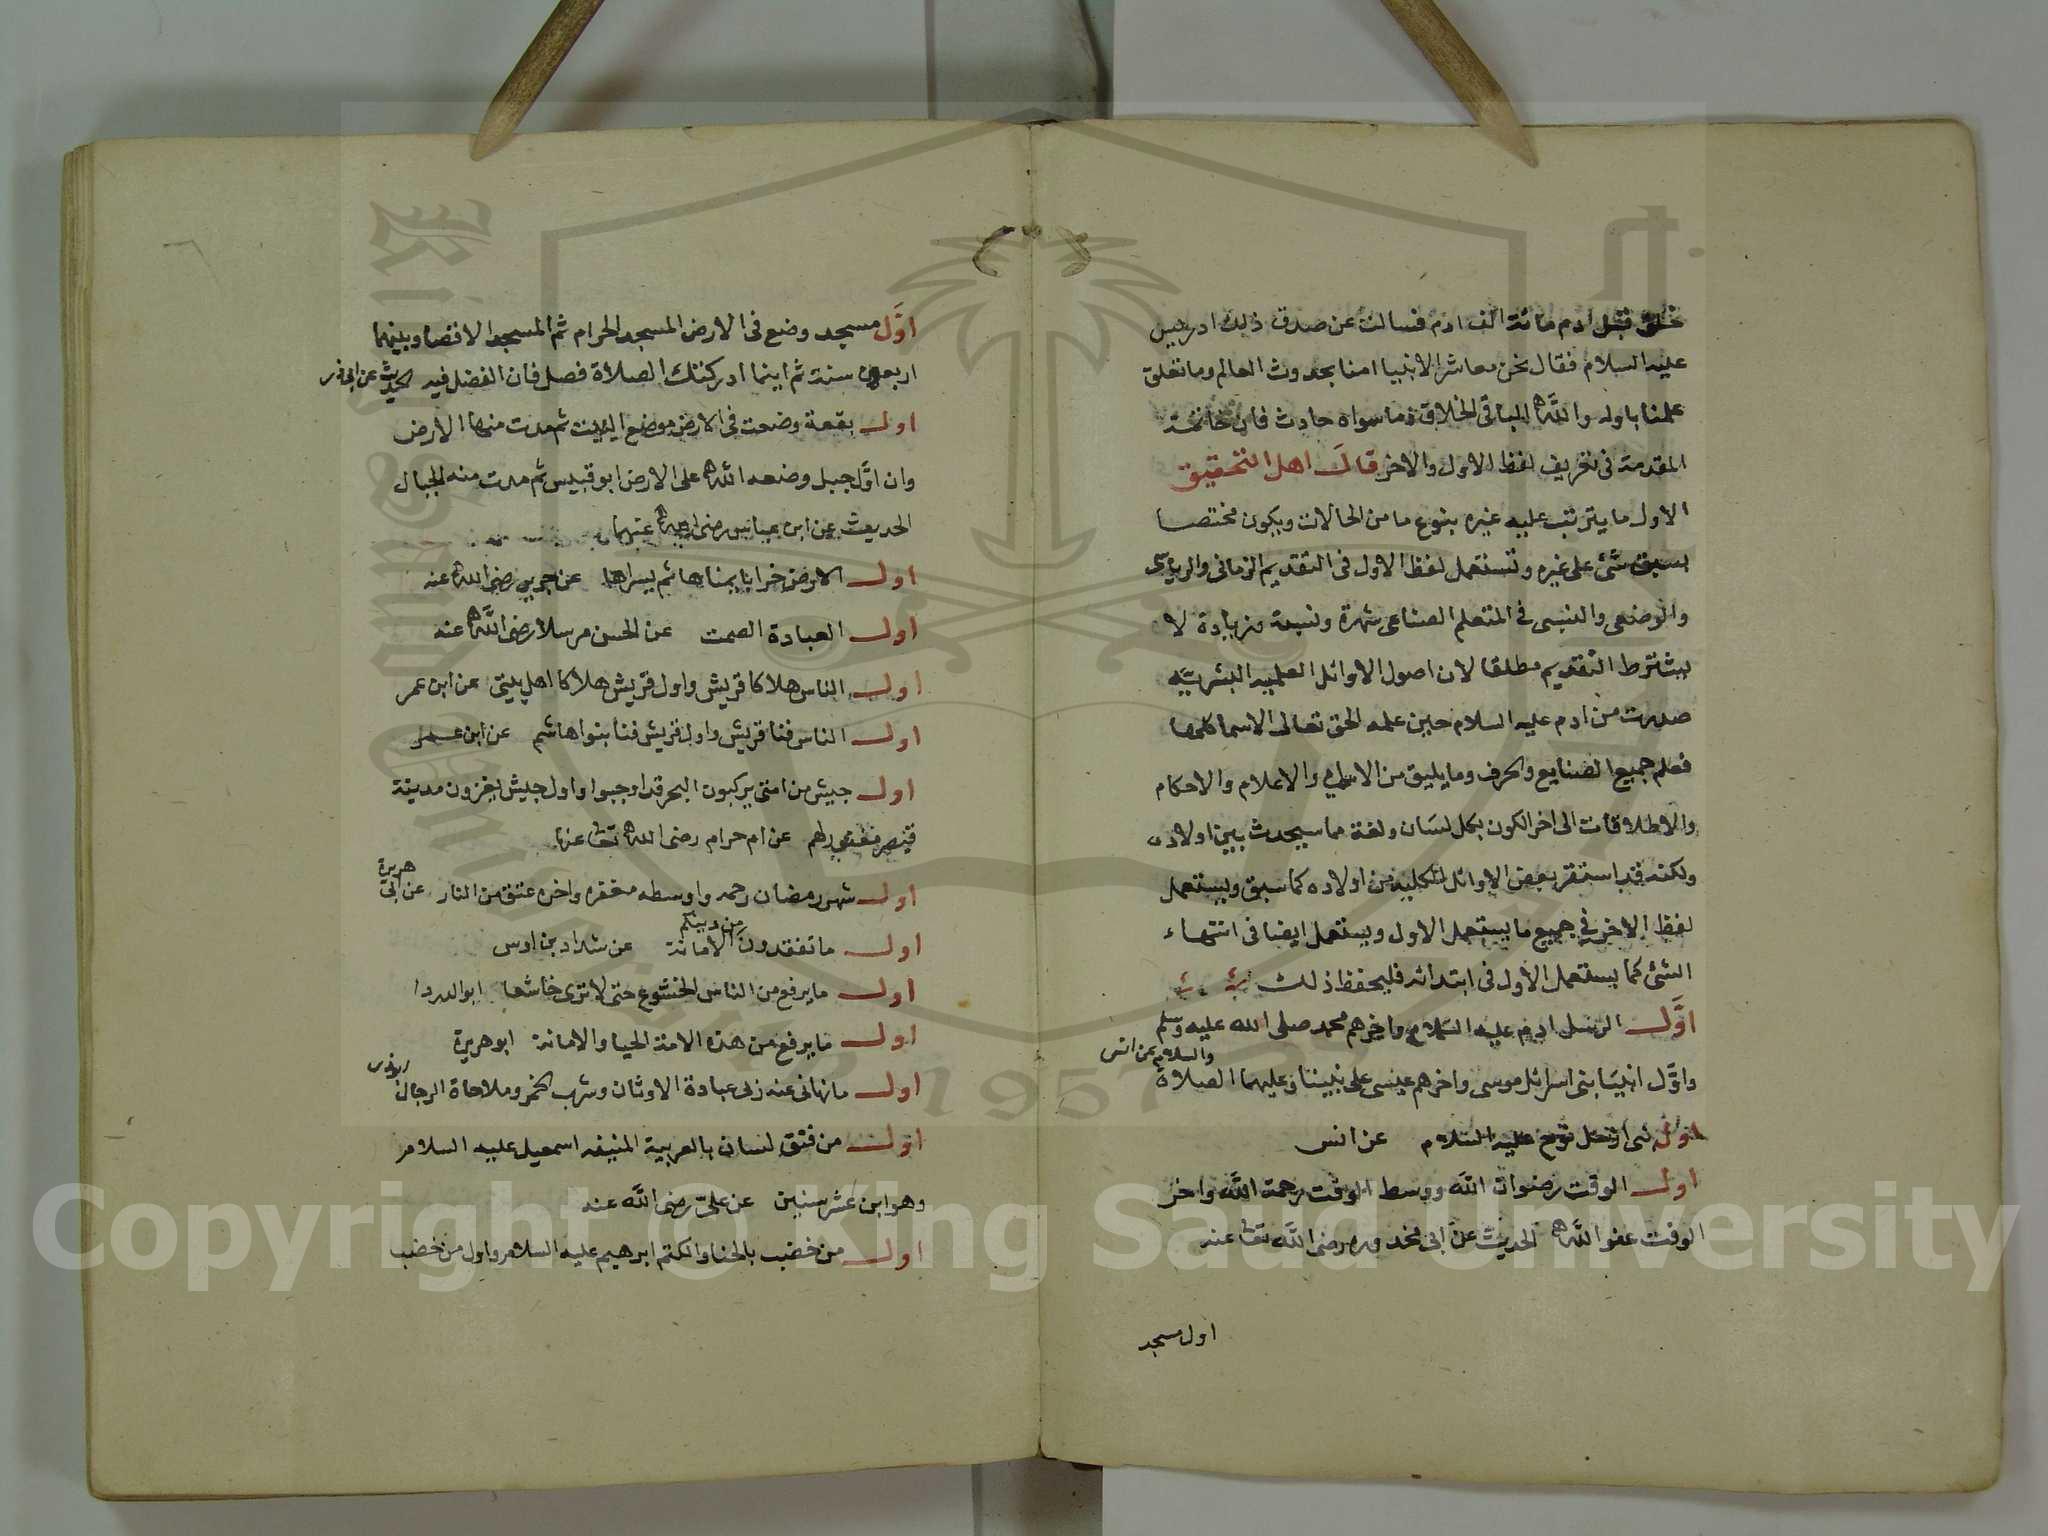 خلق قبل ادم مائة الف ادم فسالت عن صدق ذلك ادريس
عليه السلام فقال نحن معاشر الانبيا امنا بحدوث العالم وما تعلق
علمنا باوله والله الباقى الخلاق وما سواه حادث فان خاتمة
المقدمة فى تعريف لفظ الاول والاخر قال اهل التحقيق
الاول ما يترتب عليه غيره بنوع ما من الحالات ويكون مختصا
بسبق شئ على غيره وتستعمل لفظ الاول فى التقديم الزمانى والرياسى
والوضعى والنسبى فى المتعلم الصناعى شهرة ونسبة وزيادة لا
يشترط التقديم مطلقا لان اصول الاوائل العلميه البشريه
صدرت من ادم عليه السلام حين علمه الحق تعالى الاسما كلها
فعلم جميع الصنايع والحرف وما يليق من الاسامى والاعلام والاحكام
والاطلاقات الى اخر الكون بكل لسان ولغة مما سيحدث بين اولاده
ولكنه قد استقر بعض الاوائل الكليه من اولاده كما سبق ويستعمل
لفظ الاخر فى جميع ما يستعمل الاول ويستعمل ايضا فى انتهاء
الشئ كما يستعمل الاول فى ابتدائه فليحفظ ذلك
اوَّل الرسل ادم عليه السلام واخرهم محمد صلى الله عليه وسلم
واوَّل انبيا بنى اسرائل موسى واخرهم عيسى على نبينا وعليهما الصلاة والسلام عن انس
اول نبى ارسل نوح عليه السلام عن انس
اول الوقت رضوان الله ووسط الوقت رحمة الله واخر
الوقت عفو الله الحديث عن ابى محذوره رضى الله تعا عنه
اول مسجد
اوَّل مسجد وضع فى الارض المسجد الحرام ثم المسجد الاقصا وبينهما
اربعون سنة ثم اينما ادركتك الصلاة فصل فان الفضل فيه الحديث عن ابى ذر
اول بقعة وضعت فى الارض موضع البيت ثم مدت منها الارض
وان اوَّل جبل وضعه الله على الارض ابو قبيس ثم مدت منه الجبال
الحديث عن ابن عباس رضى الله عنهما
اول الارض خرابا يمناها ثم يسراها عن جرير رضى الله عنه
اول العبادة الصمت عن الحسن مرسلا رضى الله عنه
اول الناس هلاكا قريش واول قريش هلاكا اهل بيتى عن ابن عمر
اول الناس فنا قريش واول قريش فنا بنوا هاشم عن ابن عمر
اول جيش من امتى يركبون البحر قد اوجبوا واول جيش يغزون مدينة
قيصر مغفور لهم عن ام حرام رضى الله تعا عنها
اول شهر رمضان رحمه واوسطه مغفره واخره عتق من النار عن ابى هريرة
اول ما تفقدون من دينكم الامانة عن شداد بن اوس
اول ما يرفع من الناس الخشوع حتى لا ترى خاشعا ابو الدردا
اول ما يرفع من هذه الامة الحيا والامانة ابو هريرة
اول ما نهانى عنه ربى عبادة الاوثان وشرب الخمر وملاحاة الرجال
اول من فتق لسانه بالعربية المنيفه اسمعيل عليه السلام
وهو ابن عشر سنين عن على رضى الله عنه
اول من خضب بالحنا والكتم ابرهيم عليه السلام واول من خضب
Copyright © King Saud University
1957